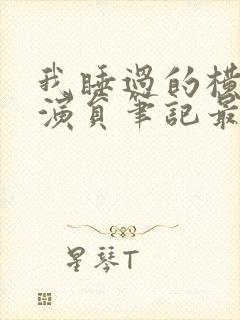 我睡過的橫
演員筆記最
星琴T